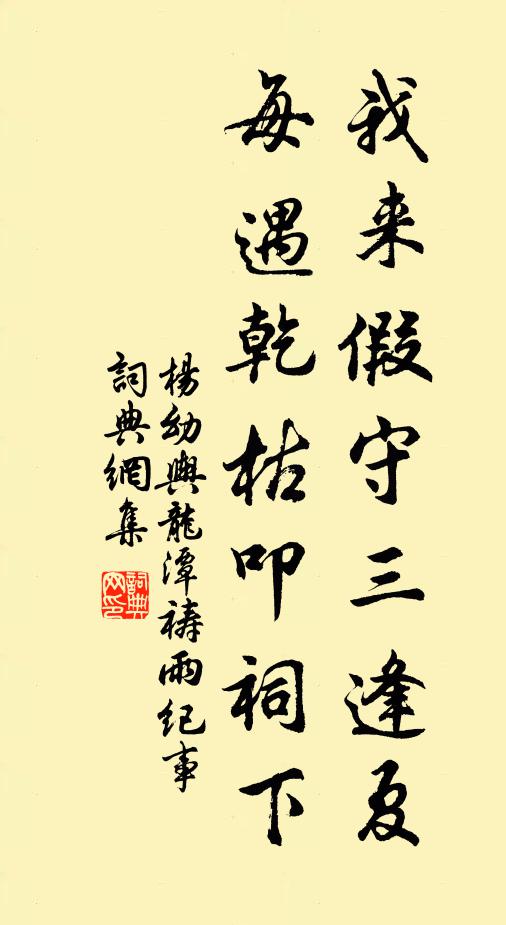 我来假守三逢夏
每遇乾枯叩祠下
楊幼輿龍潭禱雨纪事
詞典網集
詞典网印